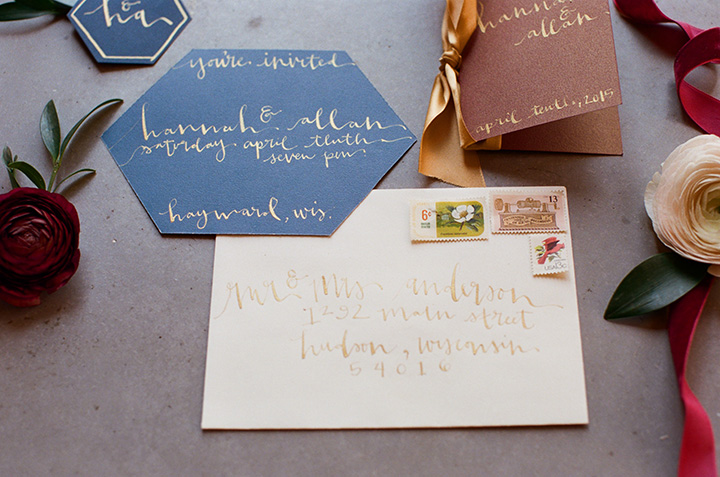 h&a
you're invited
hannah &
allan
saturday. april tenth
seven pm.
hayward, wis.
hannah
&
allan
april tenth, 2015
6¢
13
mr & mrs anderson
1292 main street
hudson, wisconsin
54016